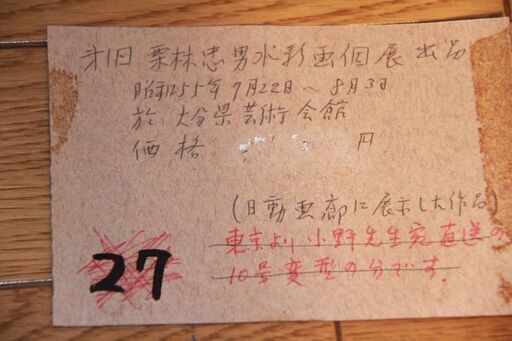 第1回 栗林忠男水彩画個展出品
昭和55年7月22日～8月3日
於大分県芸術会館
価格 円
(日動画廊に展示した作品)
東京より小野先生宛直送の
10号変型の分です。
27